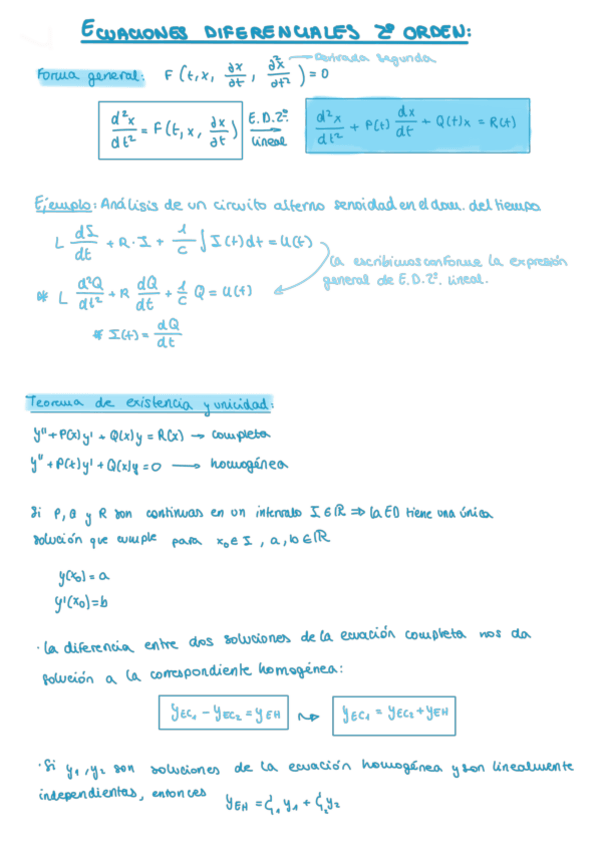 ECUACIONES DIFERENCIALES 2º ORDEN:
Forma general: F(t, x, ∂x/∂t, ∂²x/∂t²) = 0 derivada segunda
d²x/dt² = F(t, x, ∂x/∂t) E.D.2º. lineal d²x/dt² + P(t) dx/dt + Q(t)x = R(t)
Ejemplo: Análisis de un circuito alterno senoidad en el dom. del tiempo
L dI/dt + R·I + 1/C ∫I(t)dt = U(t)
La escribimos conforme la expresión
general de E.D.2º. lineal.
* L d²Q/dt² + R dQ/dt + 1/C Q = U(t)
* I(t) = dQ/dt
Teorema de existencia y unicidad:
y'' + P(x)y' + Q(x)y = R(x) → completa
y'' + P(t)y' + Q(x)y = 0 → homogénea
Si P, Q y R son continuas en un intervalo I ∈ ℝ ⇒ la ED tiene una única
solución que cumple para x₀ ∈ I, a, b ∈ ℝ
y(x₀) = a
y'(x₀) = b
· La diferencia entre dos soluciones de la ecuación completa nos da
solución a la correspondiente homogénea:
y_EC₁ - y_EC₂ = y_EH ⇝ y_EC₁ = y_EC₂ + y_EH
· Si y₁, y₂ son soluciones de la ecuación homogénea y son linealmente
independientas, entonces y_EH = C₁y₁ + C₂y₂